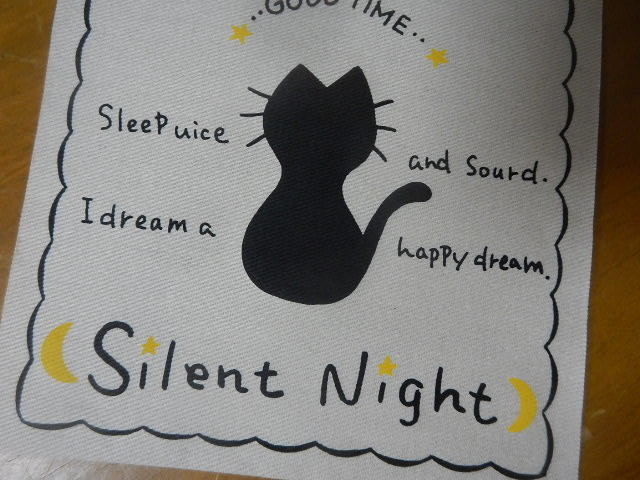 ..GOOD TIME..
SleeP uice
and Sourd.
I dream a
happy dream.
Silent Night